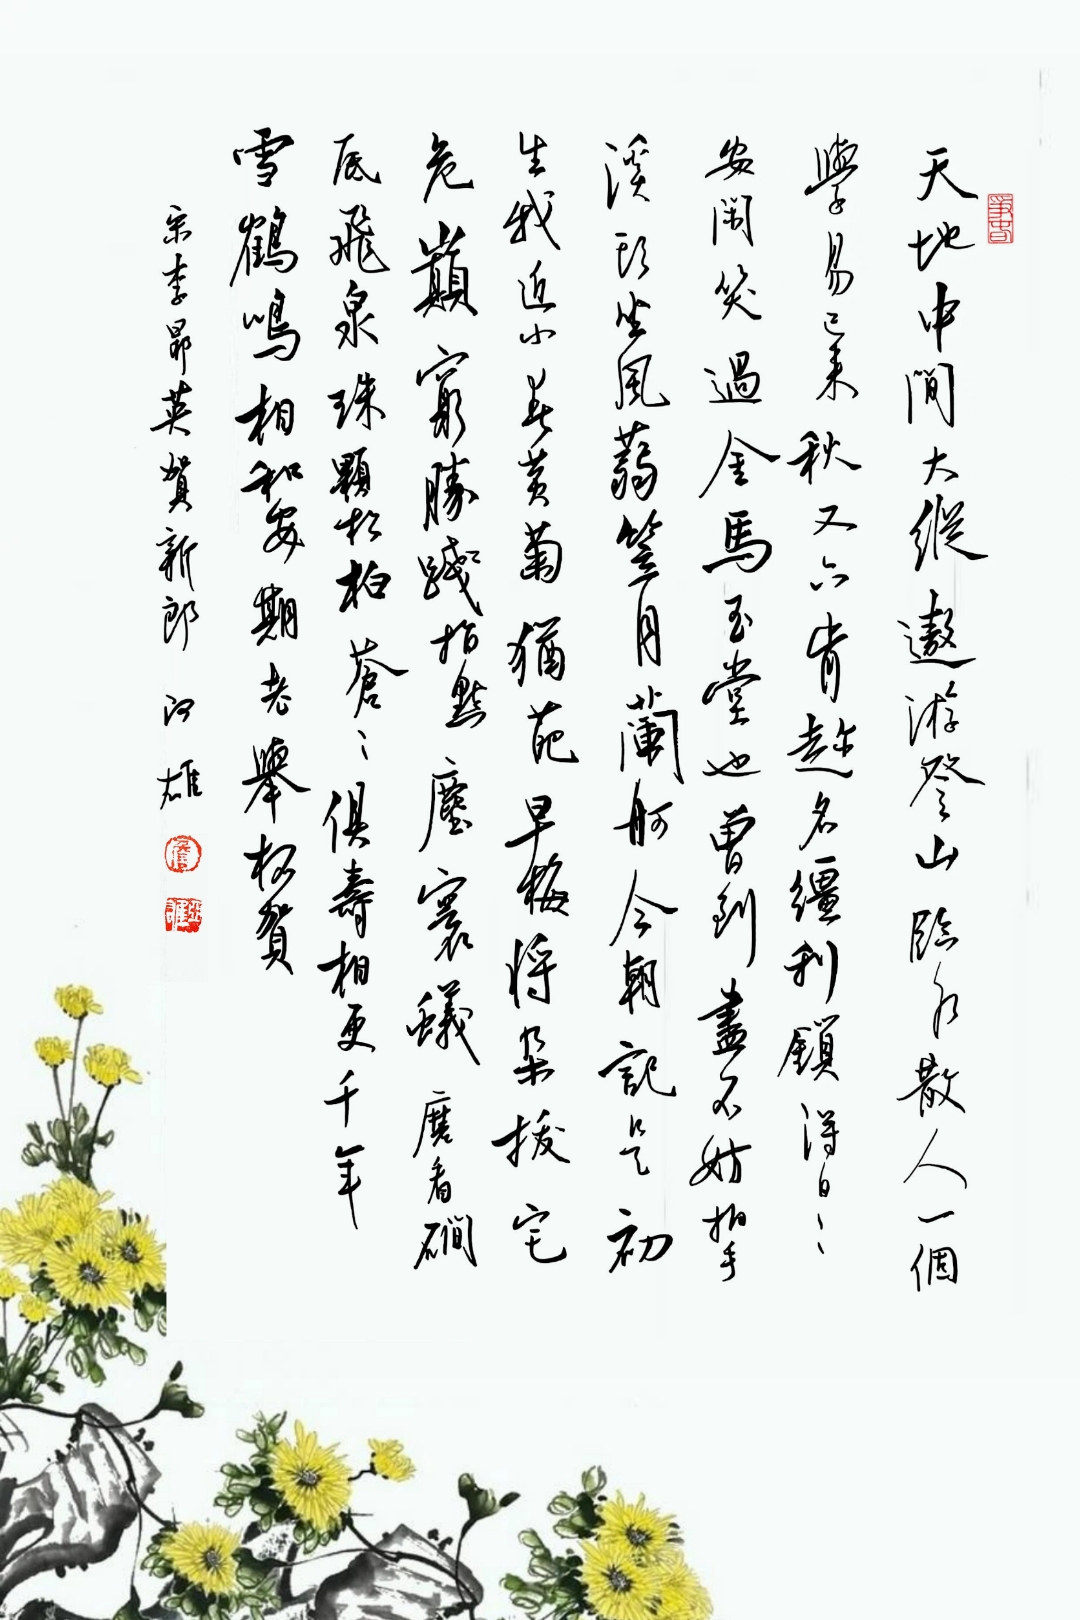 天地中間大縱遨游登山臨水散人一個
學易已來秋又六肯趁名繮利鎖得日〻
安閑笑過金馬玉堂也曾到盡不妨拍手
溪頭坐風蒻笠月蘭舸今朝記是初
生我近小春黃菊猶葩早梅將朵拔宅
危巔窮勝踐指點塵寰蟻磨看磵
底飛泉珠顆松柏蒼〻俱壽相更千年
雪鶴鳴相和安期老舉杯賀
宋李昴英賀新郎 雄